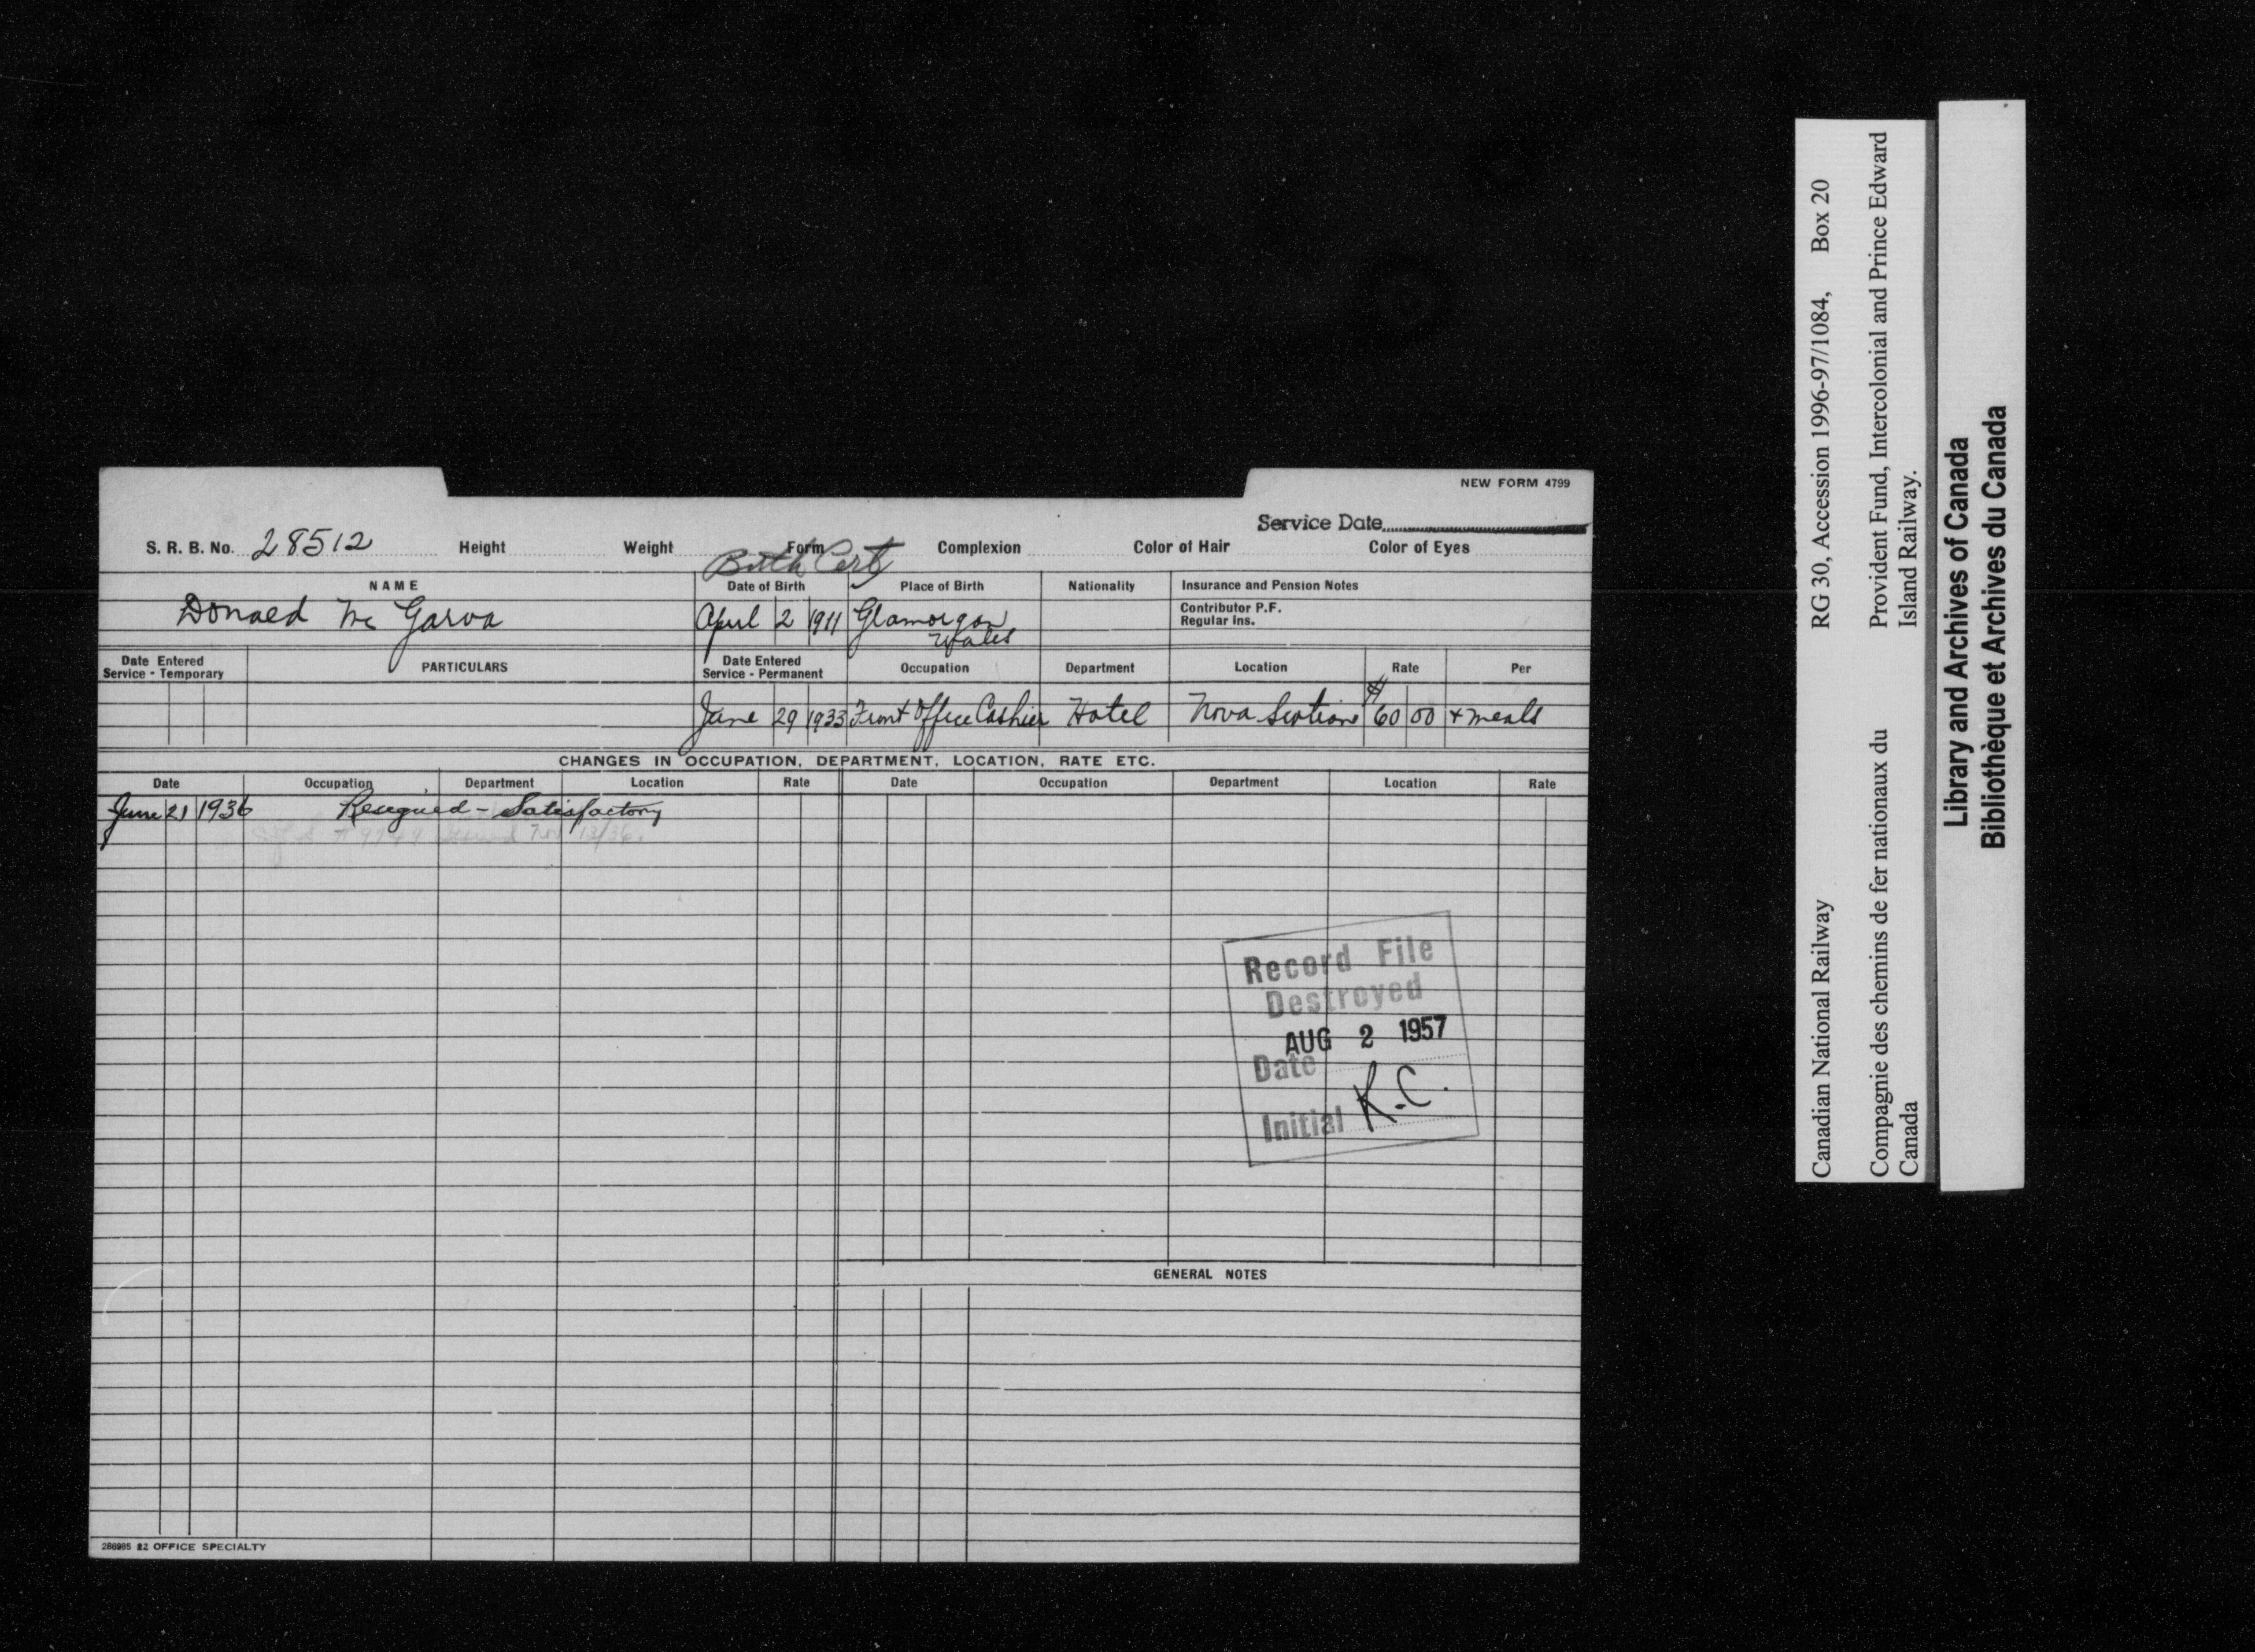 NEW FORM 4799
Service Date
S. R. B. No. 28512 Height Weight Form Complexion Color of Hair Color of Eyes
Birth Cert
NAME Date of Birth Place of Birth Nationality Insurance and Pension Notes
Donald Mc Garva April 2 1911 Glamorgan Wales Contributor P.F. Regular Ins.
Date Entered Service - Temporary PARTICULARS Date Entered Service - Permanent Occupation Department Location Rate Per
June 29 1933 Front Office Cashier Hotel Nova Scotian $ 60 00 + meals
CHANGES IN OCCUPATION, DEPARTMENT, LOCATION, RATE ETC.
Date Occupation Department Location Rate Date Occupation Department Location Rate
June 21 1936 Resigned - Satisfactory
issued Nov 13/36.
Record File
Destroyed
AUG 2 1957
Date
Initial K.C.
GENERAL NOTES
OFFICE SPECIALTY
Canadian National Railway RG 30, Accession 1996-97/1084, Box 20
Compagnie des chemins de fer nationaux du Provident Fund, Intercolonial and Prince Edward
Canada Island Railway.
Library and Archives of Canada
Bibliothèque et Archives du Canada